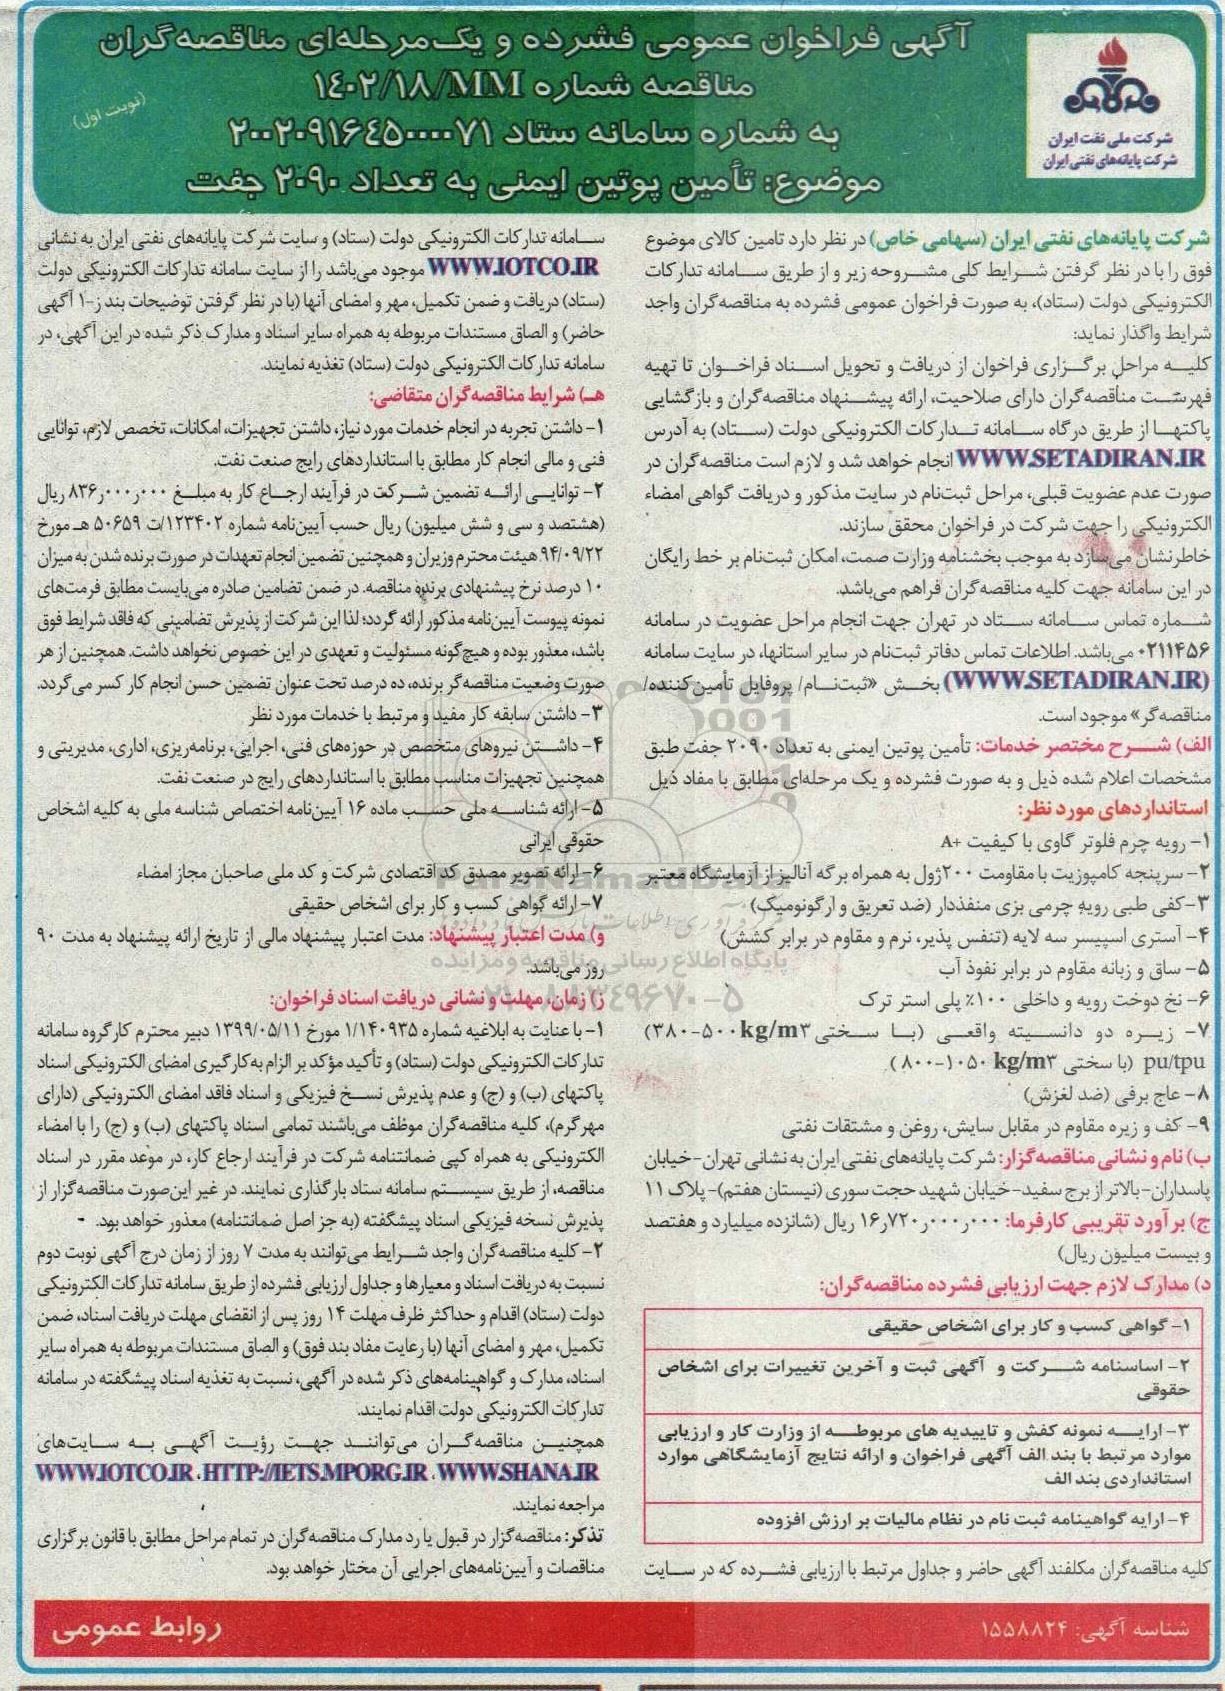 آگهی فراخوان عمومی فشرده و یک‌مرحله‌ای مناقصه‌گران
مناقصه شماره ۱۴۰۲/۱۸/MM
به شماره سامانه ستاد ۲۰۰۲۰۹۱۶۴۵۰۰۰۰۷۱
موضوع: تأمین پوتین ایمنی به تعداد ۲۰۹۰ جفت
(نوبت اول)
شرکت ملی نفت ایران
شرکت پایانه‌های نفتی ایران
شرکت پایانه‌های نفتی ایران (سهامی خاص) در نظر دارد تامین کالای موضوع
فوق را با در نظر گرفتن شرایط کلی مشروحه زیر و از طریق سامانه تدارکات
الکترونیکی دولت (ستاد)، به صورت فراخوان عمومی فشرده به مناقصه‌گران واجد
شرایط واگذار نماید:
کلیه مراحل برگزاری فراخوان از دریافت و تحویل اسناد فراخوان تا تهیه
فهرست مناقصه‌گران دارای صلاحیت، ارائه پیشنهاد مناقصه‌گران و بازگشایی
پاکتها از طریق درگاه سامانه تدارکات الکترونیکی دولت (ستاد) به آدرس
WWW.SETADIRAN.IR انجام خواهد شد و لازم است مناقصه‌گران در
صورت عدم عضویت قبلی، مراحل ثبت‌نام در سایت مذکور و دریافت گواهی امضاء
الکترونیکی را جهت شرکت در فراخوان محقق سازند.
خاطرنشان می‌سازد به موجب بخشنامه وزارت صمت، امکان ثبت‌نام بر خط رایگان
در این سامانه جهت کلیه مناقصه‌گران فراهم می‌باشد.
شماره تماس سامانه ستاد در تهران جهت انجام مراحل عضویت در سامانه
۰۲۱۱۴۵۶ می‌باشد. اطلاعات تماس دفاتر ثبت‌نام در سایر استانها، در سایت سامانه
(WWW.SETADIRAN.IR) بخش «ثبت‌نام/ پروفایل تأمین‌کننده/
مناقصه‌گر» موجود است.
الف) شرح مختصر خدمات: تأمین پوتین ایمنی به تعداد ۲۰۹۰ جفت طبق
مشخصات اعلام شده ذیل و به صورت فشرده و یک مرحله‌ای مطابق با مفاد ذیل
استانداردهای مورد نظر:
۱- رویه چرم فلوتر گاوی با کیفیت A+
۲- سرپنجه کامپوزیت با مقاومت ۲۰۰ژول به همراه برگه آنالیز از آزمایشگاه معتبر
۳-کفی طبی رویه چرمی بزی منفذدار (ضد تعریق و ارگونومیک)
۴- آستری اسپیسر سه لایه (تنفس پذیر، نرم و مقاوم در برابر کشش)
۵- ساق و زبانه مقاوم در برابر نفوذ آب
۶- نخ دوخت رویه و داخلی ۱۰۰٪ پلی استر ترک
۷- زیره دو دانسیته واقعی (با سختی kg/m۳ ۳۸۰-۵۰۰)
pu/tpu (با سختی kg/m۳ ۸۰۰-۱۰۵۰)
۸- عاج برفی (ضد لغزش)
۹- کف و زیره مقاوم در مقابل سایش، روغن و مشتقات نفتی
ب) نام و نشانی مناقصه‌گزار: شرکت پایانه‌های نفتی ایران به نشانی تهران-خیابان
پاسداران-بالاتر از برج سفید-خیابان شهید حجت سوری (نیستان هفتم)-پلاک ۱۱
ج) برآورد تقریبی کارفرما: ۱۶٫۷۲۰٫۰۰۰٫۰۰۰ ریال (شانزده میلیارد و هفتصد
و بیست میلیون ریال)
د) مدارک لازم جهت ارزیابی فشرده مناقصه‌گران:
۱- گواهی کسب و کار برای اشخاص حقیقی
۲- اساسنامه شرکت و آگهی ثبت و آخرین تغییرات برای اشخاص
حقوقی
۳- ارایه نمونه کفش و تاییدیه های مربوطه از وزارت کار و ارزیابی
موارد مرتبط با بند الف آگهی فراخوان و ارائه نتایج آزمایشگاهی موارد
استانداردی بند الف
۴- ارایه گواهینامه ثبت نام در نظام مالیات بر ارزش افزوده
کلیه مناقصه‌گران مکلفند آگهی حاضر و جداول مرتبط با ارزیابی فشرده که در سایت
سامانه تدارکات الکترونیکی دولت (ستاد) و سایت شرکت پایانه‌های نفتی ایران به نشانی
WWW.IOTCO.IR موجود می‌باشد را از سایت سامانه تدارکات الکترونیکی دولت
(ستاد) دریافت و ضمن تکمیل، مهر و امضای آنها (با در نظر گرفتن توضیحات بند ز-۱ آگهی
حاضر) و الصاق مستندات مربوطه به همراه سایر اسناد و مدارک ذکر شده در این آگهی، در
سامانه تدارکات الکترونیکی دولت (ستاد) تغذیه نمایند.
هـ) شرایط مناقصه‌گران متقاضی:
۱- داشتن تجربه در انجام خدمات مورد نیاز، داشتن تجهیزات، امکانات، تخصص لازم، توانایی
فنی و مالی انجام کار مطابق با استانداردهای رایج صنعت نفت.
۲- توانایی ارائه تضمین شرکت در فرآیند ارجاع کار به مبلغ ۸۳۶٫۰۰۰٫۰۰۰ ریال
(هشتصد و سی و شش میلیون) ریال حسب آیین‌نامه شماره ۱۲۳۴۰۲/ت ۵۰۶۵۹ هـ مورخ
۹۴/۰۹/۲۲ هیئت محترم وزیران و همچنین تضمین انجام تعهدات در صورت برنده شدن به میزان
۱۰ درصد نرخ پیشنهادی برنده مناقصه. در ضمن تضامین صادره می‌بایست مطابق فرمت‌های
نمونه پیوست آیین‌نامه مذکور ارائه گردد؛ لذا این شرکت از پذیرش تضامینی که فاقد شرایط فوق
باشد، معذور بوده و هیچ‌گونه مسئولیت و تعهدی در این خصوص نخواهد داشت. همچنین از هر
صورت وضعیت مناقصه‌گر برنده، ده درصد تحت عنوان تضمین حسن انجام کار کسر می‌گردد.
۳- داشتن سابقه کار مفید و مرتبط با خدمات مورد نظر
۴- داشتن نیروهای متخصص در حوزه‌های فنی، اجرایی، برنامه‌ریزی، اداری، مدیریتی و
همچنین تجهیزات مناسب مطابق با استانداردهای رایج در صنعت نفت.
۵- ارائه شناسه ملی حسب ماده ۱۶ آیین‌نامه اختصاص شناسه ملی به کلیه اشخاص
حقوقی ایرانی
۶- ارائه تصویر مصدق کد اقتصادی شرکت و کد ملی صاحبان مجاز امضاء
۷- ارائه گواهی کسب و کار برای اشخاص حقیقی
و) مدت اعتبار پیشنهاد: مدت اعتبار پیشنهاد مالی از تاریخ ارائه پیشنهاد به مدت ۹۰
روز می‌باشد.
ز) زمان، مهلت و نشانی دریافت اسناد فراخوان:
۱- با عنایت به ابلاغیه شماره ۱/۱۴۰۹۳۵ مورخ ۱۳۹۹/۰۵/۱۱ دبیر محترم کارگروه سامانه
تدارکات الکترونیکی دولت (ستاد) و تأکید مؤکد بر الزام به‌کارگیری امضای الکترونیکی اسناد
پاکتهای (ب) و (ج) و عدم پذیرش نسخ فیزیکی و اسناد فاقد امضای الکترونیکی (دارای
مهر گرم)، کلیه مناقصه‌گران موظف می‌باشند تمامی اسناد پاکتهای (ب) و (ج) را با امضاء
الکترونیکی به همراه کپی ضمانتنامه شرکت در فرآیند ارجاع کار، در موعد مقرر در اسناد
مناقصه، از طریق سیستم سامانه ستاد بارگذاری نمایند. در غیر این‌صورت مناقصه‌گزار از
پذیرش نسخه فیزیکی اسناد پیشگفته (به جز اصل ضمانتنامه) معذور خواهد بود.
۲- کلیه مناقصه‌گران واجد شرایط می‌توانند به مدت ۷ روز از زمان درج آگهی نوبت دوم
نسبت به دریافت اسناد و معیارها و جداول ارزیابی فشرده از طریق سامانه تدارکات الکترونیکی
دولت (ستاد) اقدام و حداکثر ظرف مهلت ۱۴ روز پس از انقضای مهلت دریافت اسناد، ضمن
تکمیل، مهر و امضای آنها (با رعایت مفاد بند فوق) و الصاق مستندات مربوطه به همراه سایر
اسناد، مدارک و گواهینامه‌های ذکر شده در آگهی، نسبت به تغذیه اسناد پیشگفته در سامانه
تدارکات الکترونیکی دولت اقدام نمایند.
همچنین مناقصه‌گران می‌توانند جهت رؤیت آگهی به سایت‌های
WWW.IOTCO.IR ، HTTP://IETS.MPORG.IR ، WWW.SHANA.IR
مراجعه نمایند.
تذکر: مناقصه‌گزار در قبول یا رد مدارک مناقصه‌گران در تمام مراحل مطابق با قانون برگزاری
مناقصات و آیین‌نامه‌های اجرایی آن مختار خواهد بود.
شناسه آگهی: ۱۵۵۸۸۲۴
روابط عمومی
ParsNamadData
پایگاه اطلاع رسانی مناقصه و مزایده
۰۲۱-۸۸۳۴۹۶۷۰-۵